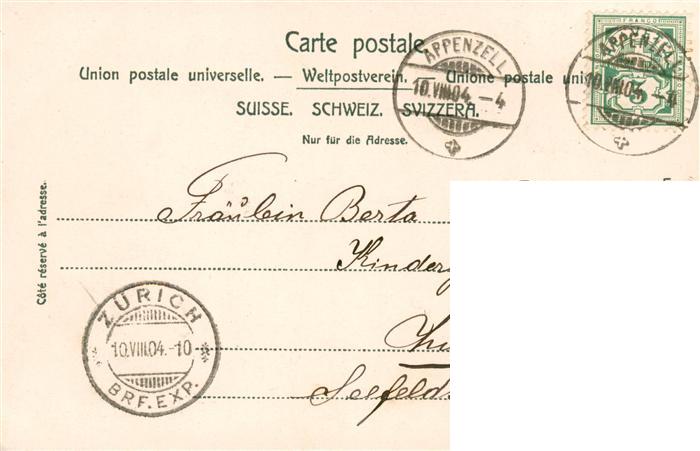 Carte postale.
Union postale universelle. — Weltpostverein. — Unione postale uni
SUISSE. SCHWEIZ. SVIZZERA.
Nur für die Adresse.
APPENZELL
10.VIII.04.-4
FRANCO
APPENZELL
10.VIII.04.-4
5
Côté réservé à l'adresse.
Fräulein Berta
Kinderg
Zü
Seefelds
ZÜRICH
10.VIII.04.-10
BRF. EXP.